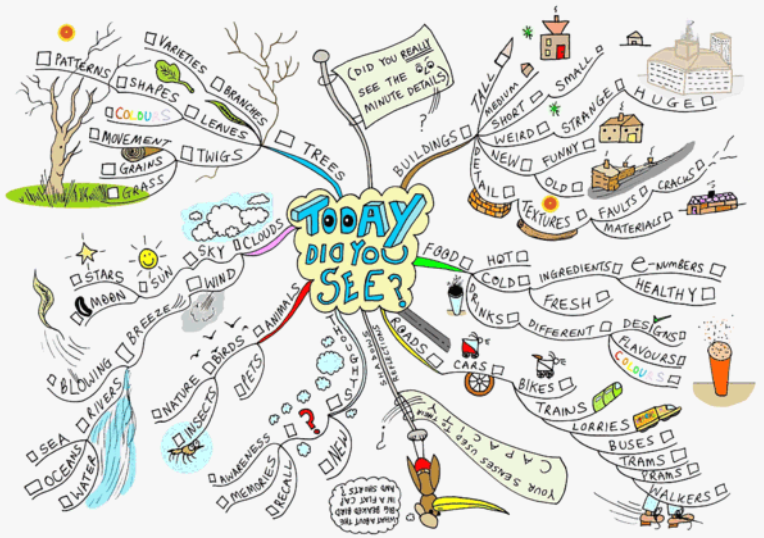 TODAY
DID YOU
SEE?
(DID YOU REALLY
SEE THE
MINUTE DETAILS)
?
TREES
BRANCHES
VARIETIES
LEAVES
SHAPES
PATTERNS
COLOURS
TWIGS
MOVEMENT
GRAINS
GRASS
BUILDINGS
TALL
MEDIUM
SHORT
SMALL
HUGE
WEIRD
STRANGE
NEW
FUNNY
OLD
DETAIL
TEXTURES
FAULTS
CRACKS
MATERIALS
CLOUDS
SKY
SUN
STARS
MOON
WIND
BREEZE
BLOWING
RIVERS
SEA
OCEANS
WATER
ANIMALS
BIRDS
PETS
NATURE
INSECTS
THOUGHTS
?
NEW
AWARENESS
MEMORIES
RECALL
SHADOWS
REFLECTIONS
?
FOOD
HOT
COLD
INGREDIENTS
e-NUMBERS
FRESH
HEALTHY
DRINKS
DIFFERENT
DESIGNS
FLAVOURS
COLOURS
ROADS
CARS
BIKES
TRAINS
LORRIES
BUSES
TRAMS
PRAMS
WALKERS
YOUR SENSES USED TO THEIR
CAPACITY
(WHAT ABOUT THE
BIG BEAKED BIRD
IN A FLAT CAP
AND SHORTS?)